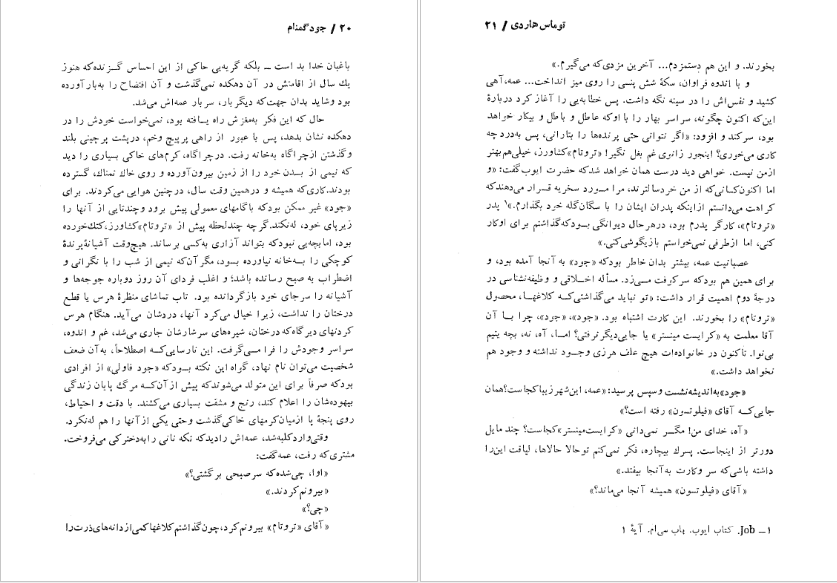 ۲۰ / جود گمنام
باغبان خدا بد است ــ بلکه گریه‌یی حاکی از این احساس گزنده‌که هنوز
یك سال از اقامتش در آن دهکده نمی‌گذشت و آن افتضاح را به‌بار آورده
بود و شاید بدان جهت‌که دیگربار، سربار عمه‌اش می‌شد.
حال که این فکر به‌مغزش راه یافته بود، نمی‌خواست خودش را در
دهکده نشان بدهد، پس با عبور از راهی پرپیچ وخم، درپشت پرچینی بلند
وگذشتن ازچراگاه به‌خانه رفت. درچراگاه، کرم‌های خاکی بسیاری را دید
که نیمی از بدن خود را از زمین بیرون‌آورده و روی خاك نمناك، گسترده
بودند. کاری‌که همیشه و درهمین وقت سال، درچنین هوایی می‌کردند. برای
«جود» غیر ممکن بودکه باگامهای معمولی پیش برود وچندتایی از آنها را
زیرپای خود، له‌نکند. گرچه چندلحظه پیش از «تروتام»کشاورز،کتك‌خورده
بود، امابچه‌یی نبودکه بتواند آزاری به‌کسی برساند. هیچ‌وقت آشیانهٔ پرندهٔ
کوچکی را به‌خانه نیاورده بسود، مگر آن‌که نیمی از شب را با نگرانی و
اضطراب به صبح رسانده باشد؛ و اغلب فردای آن روز دوباره جوجه‌ها و
آشیانه را سرجای خود بازگردانده بود. تاب تماشای منظرهٔ هرس یا قطع
درختان را نداشت، زیرا خیال می‌کرد آنها، دردشان می‌آید. هنگام هرس
کردنهای دیرگاه‌که درختان، شیره‌های سرشارشان جاری می‌شد، غم و اندوه،
سراسر وجودش را فرا مسی‌گرفت. این نارسایی‌کسه اصطلاحاً، به‌آن ضعف
شخصیت می‌توان نام نهاد، گواه این نکته بسودکه «جود فاولی» از افرادی
بودکه صرفاً برای این متولد می‌شوندکه پیش از آن‌کسه مرگ پایان زندگی
بیهوده‌شان را اعلام کند، رنج و مشقت بسیاری می‌کشند. با دقت و احتیاط،
روی پنجهٔ پا ازمیان‌کرمهای خاکی‌گذشت وحتی یکی ازآنها را هم له‌نکرد.
وقتی‌واردکلبه‌شد، عمه‌اش رادیدکه تکه نانی رابه‌دخترکی می‌فروخت.
مشتری‌که رفت، عمه‌گفت:
«اوا، چی‌شده‌که سرصبحی برگشتی؟»
«بیرونم‌کردند.»
«چی؟»
«آقای «تروتام» بیرونم‌کرد، چون‌گذاشتم‌کلاغهاکمی‌ازدانه‌های‌ذرت‌را
توماس هاردی / ۲۱
بخورند. و این هم دستمزدم... آخرین مزدی‌که می‌گیرم.»
و با اندوه فراوان، سکهٔ شش پنسی را روی میز انداخت... عمه، آهی
کشید و نفس‌اش را در سینه نگه داشت. پس خطابه‌یی را آغاز کرد دربارهٔ
این‌که اکنون چگونه، سراسر بهار را با اوکه عاطل و باطل و بیکار خواهد
بود، سرکند و افزود: «اگر نتوانی حتی پرنده‌ها را بتارانی، پس به‌درد چه
کاری می‌خوری؟ اینجور زانوی غم بغل نگیر! «تروتام»کشاورز، خیلی‌هم‌بهتر
ازمن نیست. خواهی دید درست همان خواهد شدکه حضرت ایوب‌گفت: «و
اما اکنون‌کسانی‌که از من خردسالترند، مرا مسورد سخریه قسرار می‌دهندکه
کراهت می‌داشتم ازاینکه پدران ایشان را با سگان‌گله خود بگذارم.»۱ پدر
«تروتام»، کارگر پدرم بود، درهرحال دیوانگی بسودکه‌گذاشتم برای اوکار
کنی، اما ازطرفی نمی‌خواستم بازیگوشی‌کنی.»
عصبانیت عمه، بیشتر بدان خاطر بودکه «جود» به آنجا آمده بود، و
برای همین هم بودکه سرکوفت مسی‌زد. مسأله اخلاقی و وظیفه‌شناسی در
درجهٔ دوم اهمیت قرار داشت: «تو نباید می‌گذاشتی‌کسه کلاغها، محصول
«تروتام» را بخورند. این کارت اشتباه بود. «جود»، «جود»، چرا بسا آن
آقا معلمت به «کرایست مینستر» یا جایی‌دیگر نرفتی؟ امسا، آه، نه، بچه یتیم
بی‌نوا. تاکنون در خانواده‌ات هیچ علف هرزی وجسود نداشته و وجود هم
نخواهد داشت.»
«جود»به‌اندیشه‌نشست و سپس پرسید: «عمه، این‌شهرزیباکجاست؟همان
جایی‌کسه آقای «فیلوتسون» رفته است؟»
«آه، خدای من! مگسر نمی‌دانی «کرایست‌مینستر»کجاست؟ چند مایل
دورتر از اینجاست. پسرك بیچاره، فکر نمی‌کنم توحالا حالاها، لیاقت این‌را
داشته باشی‌که سر وکارت به‌آنجا بیفتد.»
«آقای «فیلوتسون» همیشه آنجا می‌ماند؟»
۱ــ Job. کتاب ایوب. باب سی‌ام. آیهٔ ۱